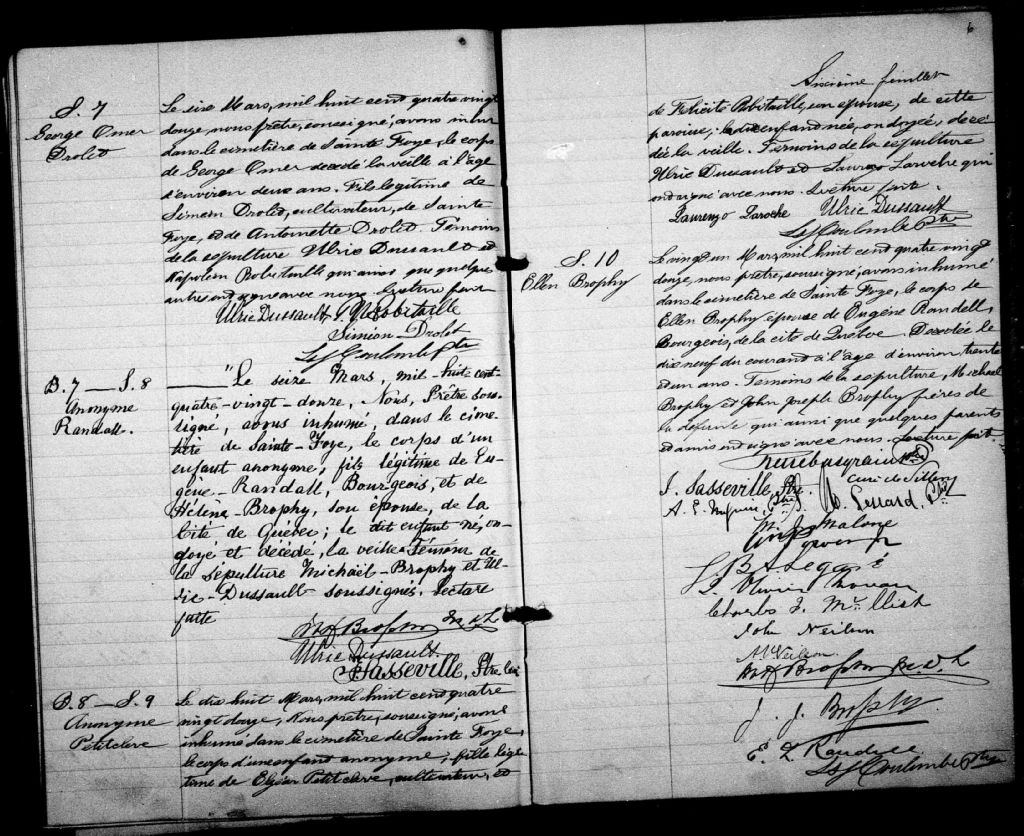 S. 7
George Omer
Drolet
Le six Mars, mil huit cent quatre vingt
douze, nous prêtre, soussigné, avons inhumé
dans le cimetière de Sainte Foye, le corps
de George Omer décédé la veille à l'âge
d'environ deux ans. Fils légitime de
Siméon Drolet, cultivateur, de Sainte
Foye, et de Antoinette Drolet. Témoins
de la sépulture Ulric Dussault et
Napoléon Robitaille qui ainsi que quelques
autres ont signé avec nous. Lecture faite
Ulric Dussault N Robitaille
Siméon Drolet
Ls J Coulombe Ptre
B. 7 — S. 8
Anonyme
Randall.
Le seize Mars, mil-huit-cent
quatre-vingt-douze, Nous, Prêtre sous-
signé, avons inhumé, dans le cime-
tière de Sainte-Foye, le corps d'un
enfant anonyme, fils légitime de Eu-
gène-Randall, Bourgeois, et de
Hélène-Brophy, son épouse, de la
Cité de Québec; le dit enfant né, on-
doyé et décédé, la veille. Témoins de
la sépulture Michaël-Brophy et Ul-
ric-Dussault soussignés. Lecture
faite
M A Brophy M.D.L
Ulric Dussault.
J Sasseville, Ptre Curé
B. 8 — S. 9
Anonyme
Petitclerc
Le dix huit Mars, mil huit cent quatre
vingt douze, Nous prêtre, soussigné, avons
inhumé dans le cimetière de Sainte Foye,
le corps d'un enfant anonyme, fille légi-
time de Elzéar Petitclerc, cultivateur, et
6
Sixième feuillet
de Félicité Robitaille, son épouse, de cette
paroisse; la dite enfant née, ondoyée, décé
dée la veille. Témoins de la sépulture
Ulric Dussault et Laurenzo Laroche qui
ont signé avec nous. Lecture faite.
Laurenzo Laroche Ulric Dussault
Ls J Coulombe Ptre
S. 10
Ellen Brophy
Le vingt un Mars, mil huit cent quatre vingt
douze, nous prêtre, soussigné, avons inhumé
dans le cimetière de Sainte Foye, le corps de
Ellen Brophy épouse de Eugène Randell,
Bourgeois, de la cité de Québec Décédée le
dix neuf du courant à l'âge d'environ trente
et un ans. Témoins de la sépulture, Michael
Brophy et John Joseph Brophy frères de
la défunte qui ainsi que quelques parents
et amis ont signé avec nous. Lecture faite.
Ptre
Curé de Sillery
J. Sasseville, Ptre.
A. E. Maguire, Ptre
Lessard, Ptre
M. J. Malone
L. B. A. Légaré
Olivier
Charles J.
John Neilson
Neilson
M A Brophy M.D.L
J. J. Brophy
E. Z. Randell
Ls J Coulombe Ptre